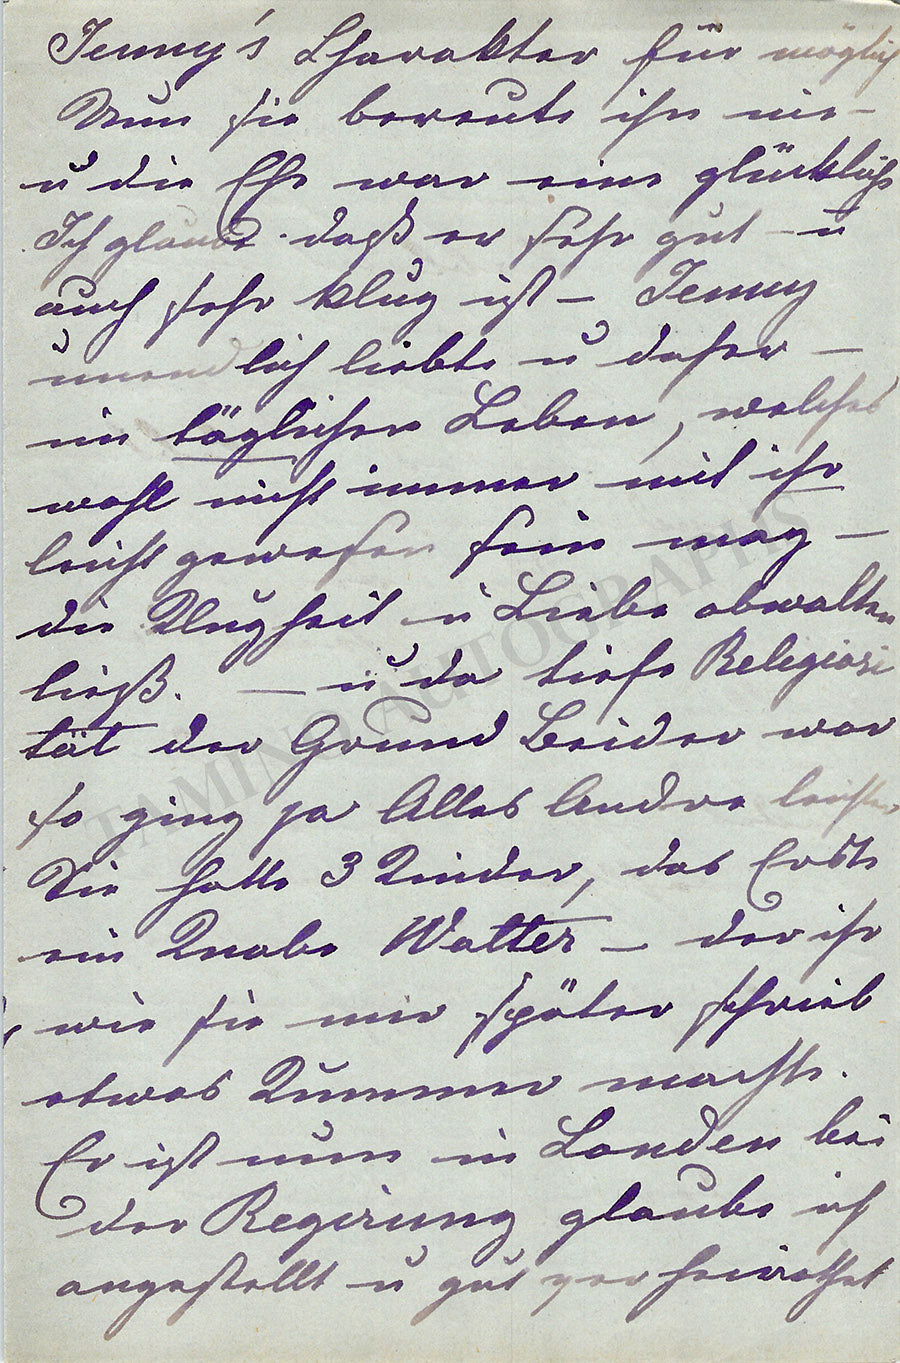 Jenny's Charakter für möglich
Nun sie bereute ihn nie –
u die Ehe war eine glückliche
Ich glaube daß er sehr gut – u
auch sehr klug ist – Jenny
unendlich liebte u daher –
im täglichen Leben, welches
wohl nicht immer mit ihr
leicht gewesen sein mag –
die Klugheit u Liebe obwalten
ließ. — u da tiefe Religiosi
tät der Grund Beider war
so ging ja Alles Andre leichter
Sie hatte 3 Kinder, das Erste
ein Knabe Walter – der ihr
wie sie mir später schrieb
etwas Kummer machte.
Er ist nun in London bei
der Regirung glaube ich
angestellt u gut verheirathet
TAMINO AUTOGRAPHS